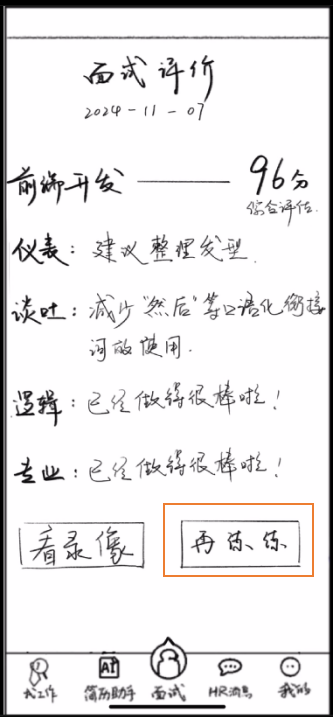 面试评价
2024-11-07
前端开发 —— 96分
综合评估.
仪表：建议整理发型.
谈吐：减少"然后"等口语化衔接
词的使用.
逻辑：已经做得很棒啦！
专业：已经做得很棒啦！
看录像 再练练
找工作 AI 简历助手 面试 HR消息 我的